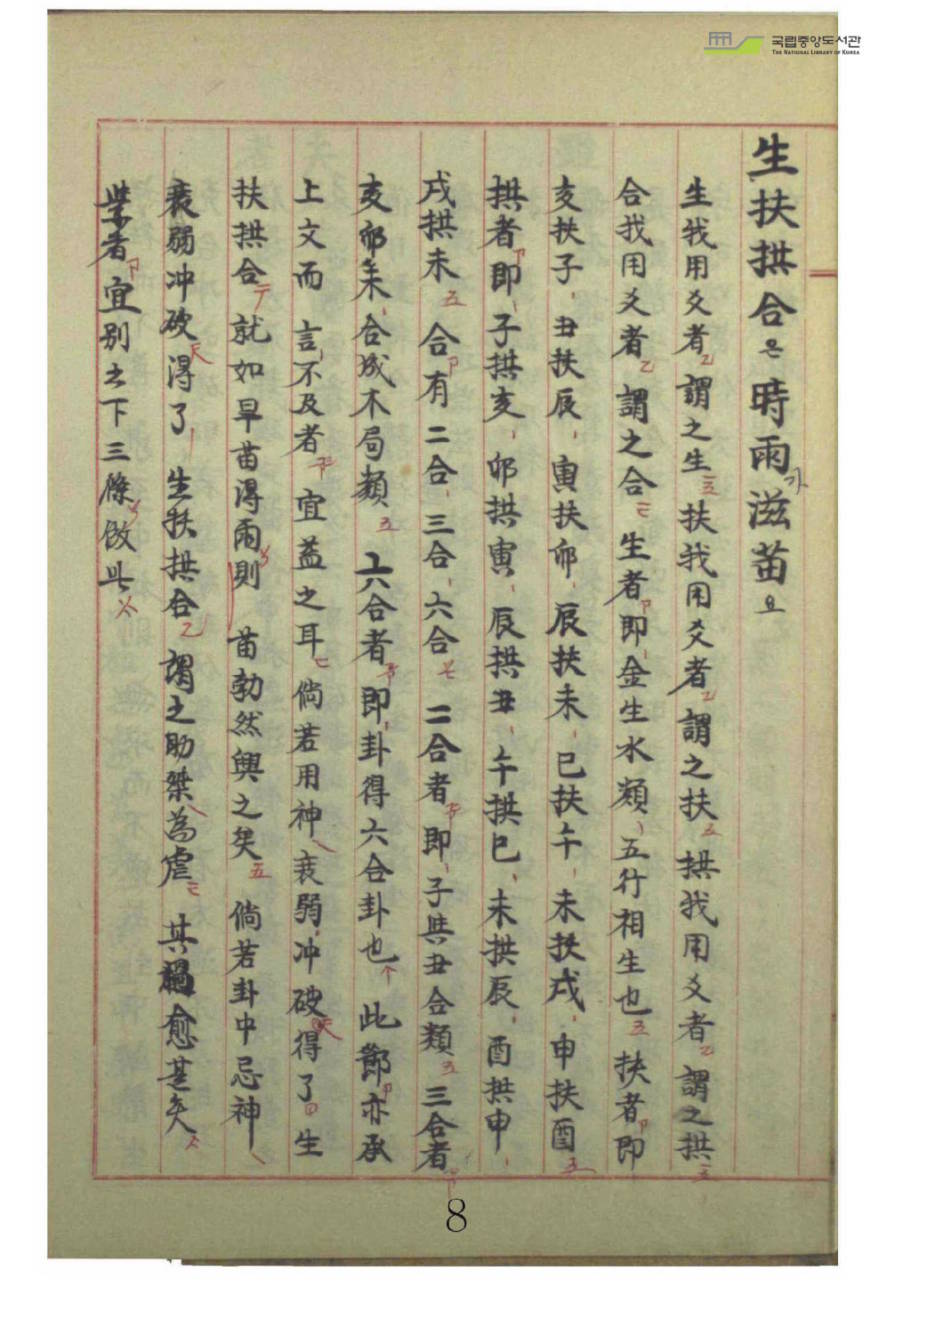 국립중앙도서관
THE NATIONAL LIBRARY OF KOREA
生扶拱合은 時雨가 滋苗요
生我用爻者謂之生扶我用爻者謂之扶拱我用爻者謂之拱
合我用爻者謂之合生者即金生水類五行相生也扶者即
亥扶子丑扶辰寅扶卯辰扶未巳扶午未扶戌申扶酉
拱者即子拱亥卯拱寅辰拱丑午拱巳未拱辰酉拱申
戌拱未合有二合三合六合二合者即子與丑合類三合者
亥卯未合成木局類六合者即卦得六合卦也此節亦承
上文而言不及者宜益之耳倘若用神衰弱冲破得了生
扶拱合就如旱苗得雨則苗勃然興之矣倘若卦中忌神
衰弱冲破得了生扶拱合謂之助桀為虐其禍愈甚矣
學者宜別之下三條倣此
8